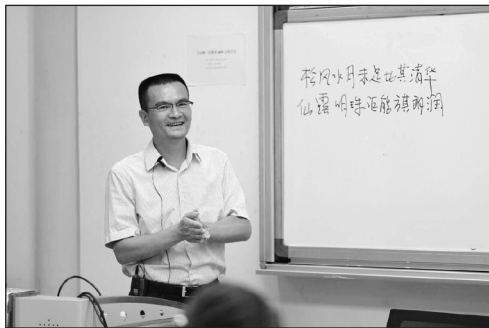 松风水月未足比其清华
仙露明珠讵能方其朗润